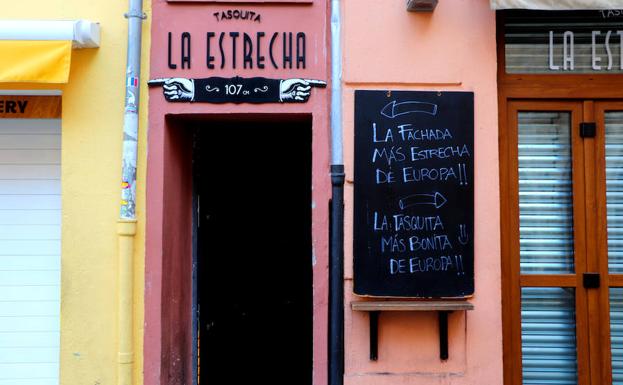 TASQUITA
LA ESTRECHA
107 CM
LA FACHADA
MÁS ESTRECHA
DE EUROPA!!
LA TASQUITA
MÁS BONITA
DE EUROPA!!
TASQUITA
LA ES
ERY